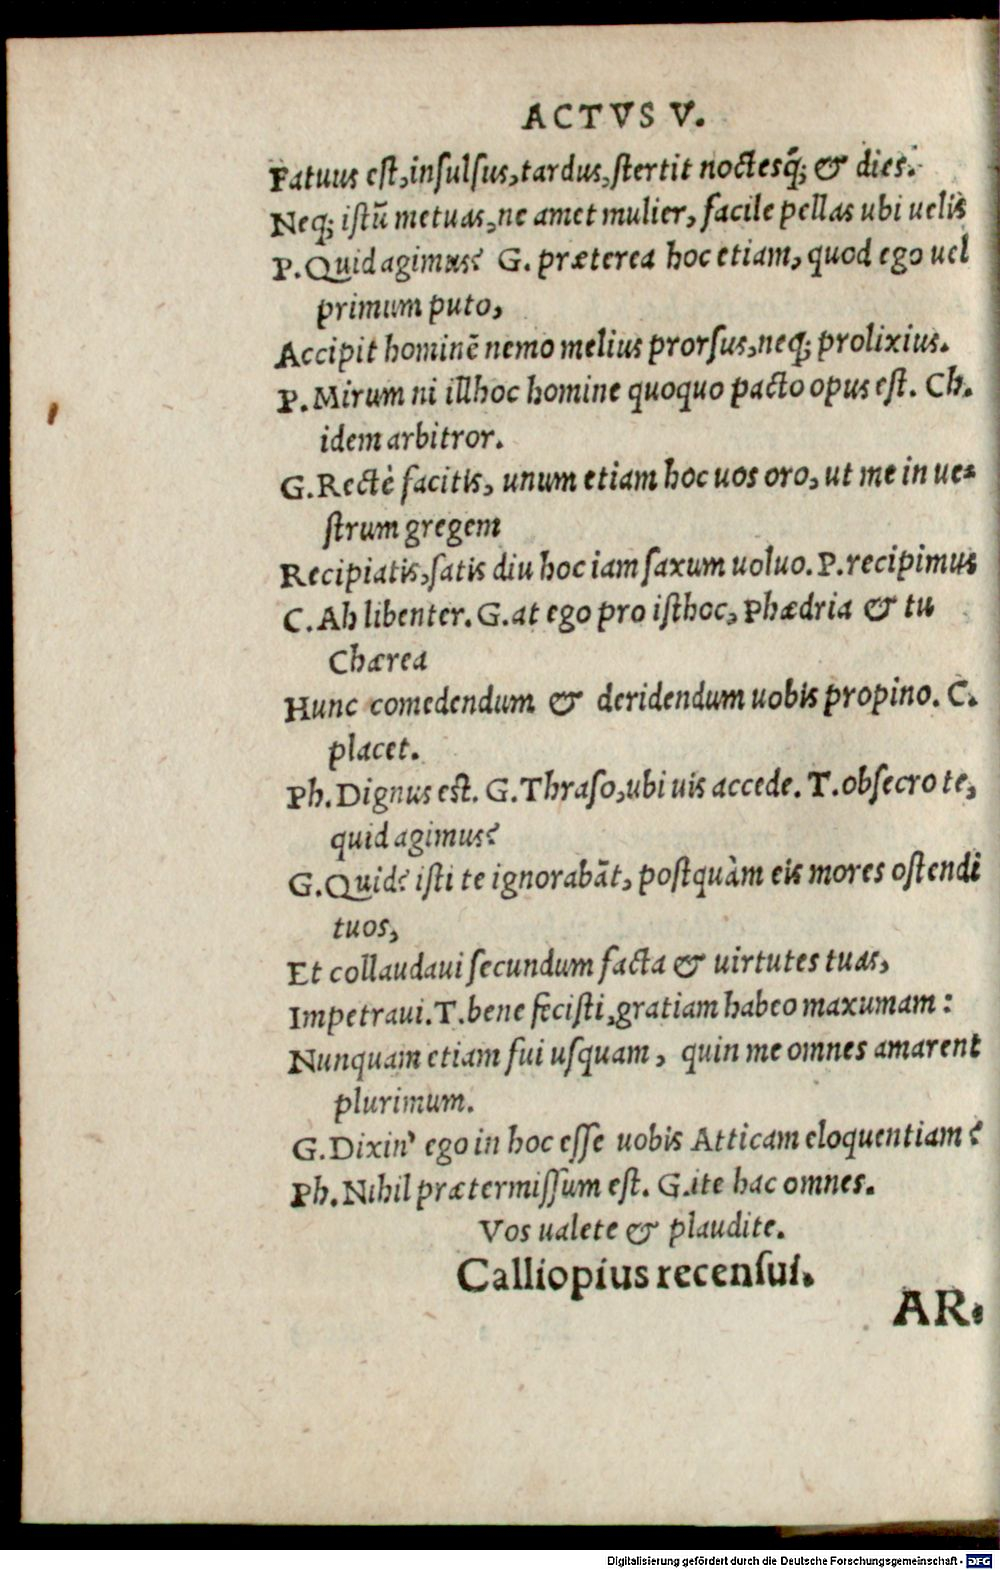 ACTVS V.
Fatuus est, insulsus, tardus, stertit noctesq̃; & dies.
Neq; istũ metuas, ne amet mulier, facile pellas ubi uelis
P. Quid agimus? G. præterea hoc etiam, quod ego uel
primum puto,
Accipit hominẽ nemo melius prorsus, neq; prolixius.
P. Mirum ni illhoc homine quoquo pacto opus est. Ch.
idem arbitror.
G. Rectè facitis, unum etiam hoc uos oro, ut me in ue-
strum gregem
Recipiatis, satis diu hoc iam saxum uoluo. P. recipimus
C. Ah libenter. G. at ego pro isthoc, Phædria & tu
Chærea
Hunc comedendum & deridendum uobis propino. C.
placet.
Ph. Dignus est. G. Thraso, ubi uis accede. T. obsecro te,
quid agimus?
G. Quid? isti te ignorabãt, postquàm eis mores ostendi
tuos,
Et collaudaui secundum facta & uirtutes tuas,
Impetraui. T. bene fecisti, gratiam habeo maxumam:
Nunquam etiam fui usquam, quin me omnes amarent
plurimum.
G. Dixin' ego in hoc esse uobis Atticam eloquentiam?
Ph. Nihil prætermissum est. G. ite hac omnes.
Vos ualete & plaudite.
Calliopius recensui.
AR-
Digitalisierung gefördert durch die Deutsche Forschungsgemeinschaft - DFG